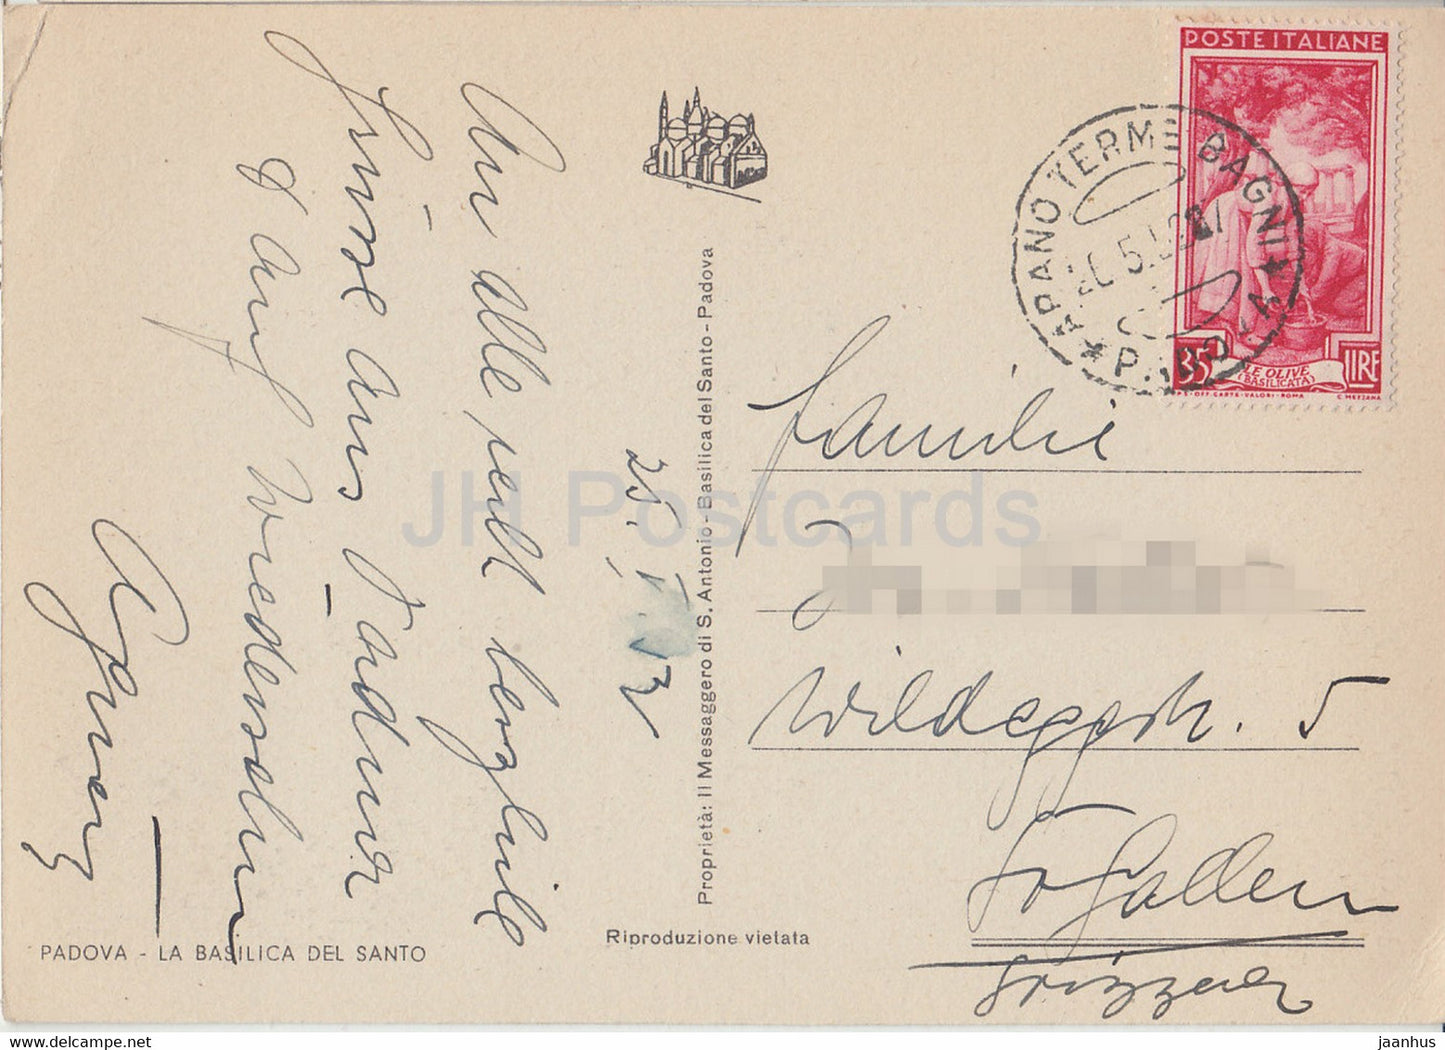 POSTE ITALIANE
35 LIRE
LE OLIVE
(BASILICATA)
I.P.S.-OFF.CARTE-VALORI-ROMA C. MEZZANA
ABANO TERME BAGNI
PADOVA
An Alle recht herzliche
Grüsse aus Padua
& auf Wiedersehen
Agnes
25. V.
Familie
Wildeggstr. 5
St Gallen
Svizzera
Proprietà: Il Messaggero di S. Antonio - Basilica del Santo - Padova
Riproduzione vietata
PADOVA - LA BASILICA DEL SANTO
JH Postcards
https://www.delcampe.net
jaanhus